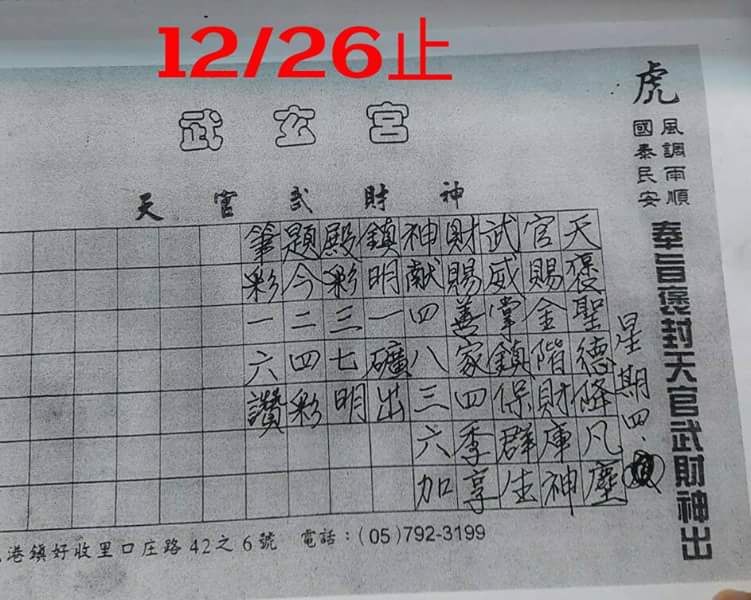 12/26止
武玄宮
天官武財神
虎
風調雨順
國泰民安
奉旨褒封天官武財神出
星期四.
天褒聖德降凡塵
官賜金階財庫神
武威掌鎮保群生
財賜善家四季享
神献四八三六加
鎮明一礦出
殿彩三七明
題今二四彩
筆彩一六讚
港鎮好收里口庄路42之6號 電話：(05)792-3199